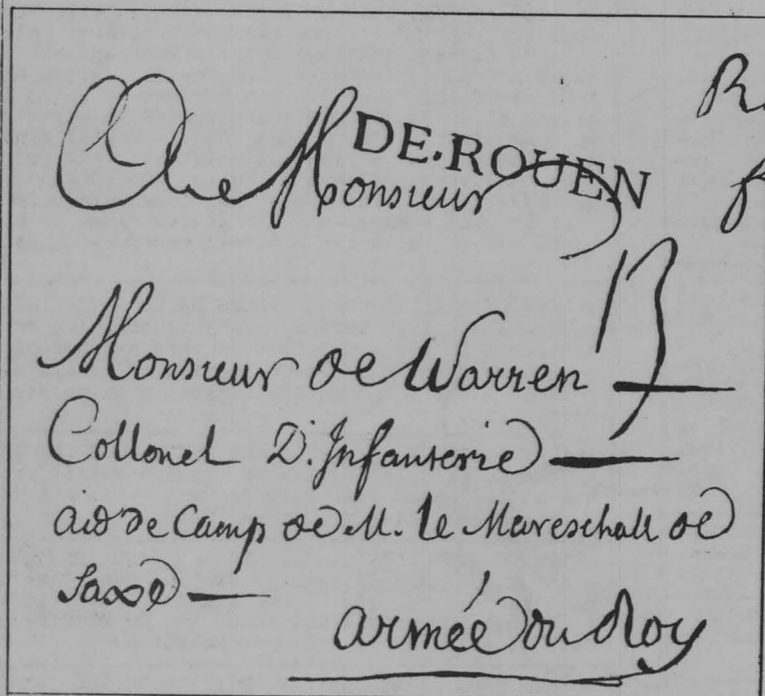 DE.ROUEN
A Monsieur
13
Monsieur de Warren
Collonel D'Infanterie
aid de Camp de M. le Mareschall de
Saxe
armée du Roy